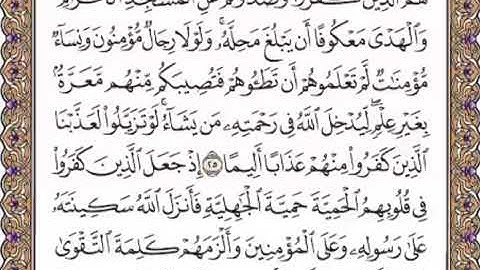 هُمُ ٱلَّذِينَ كَفَرُوا۟ وَصَدُّوكُمْ عَنِ ٱلْمَسْجِدِ ٱلْحَرَامِ
وَٱلْهَدْىَ مَعْكُوفًا أَن يَبْلُغَ مَحِلَّهُۥ ۚ وَلَوْلَا رِجَالٌ مُّؤْمِنُونَ وَنِسَآءٌ
مُّؤْمِنَٰتٌ لَّمْ تَعْلَمُوهُمْ أَن تَطَـُٔوهُمْ فَتُصِيبَكُم مِّنْهُم مَّعَرَّةٌۢ
بِغَيْرِ عِلْمٍ ۖ لِّيُدْخِلَ ٱللَّهُ فِى رَحْمَتِهِۦ مَن يَشَآءُ ۚ لَوْ تَزَيَّلُوا۟ لَعَذَّبْنَا
ٱلَّذِينَ كَفَرُوا۟ مِنْهُمْ عَذَابًا أَلِيمًا ۝٢٥ إِذْ جَعَلَ ٱلَّذِينَ كَفَرُوا۟
فِى قُلُوبِهِمُ ٱلْحَمِيَّةَ حَمِيَّةَ ٱلْجَٰهِلِيَّةِ فَأَنزَلَ ٱللَّهُ سَكِينَتَهُۥ
عَلَىٰ رَسُولِهِۦ وَعَلَى ٱلْمُؤْمِنِينَ وَأَلْزَمَهُمْ كَلِمَةَ ٱلتَّقْوَىٰ